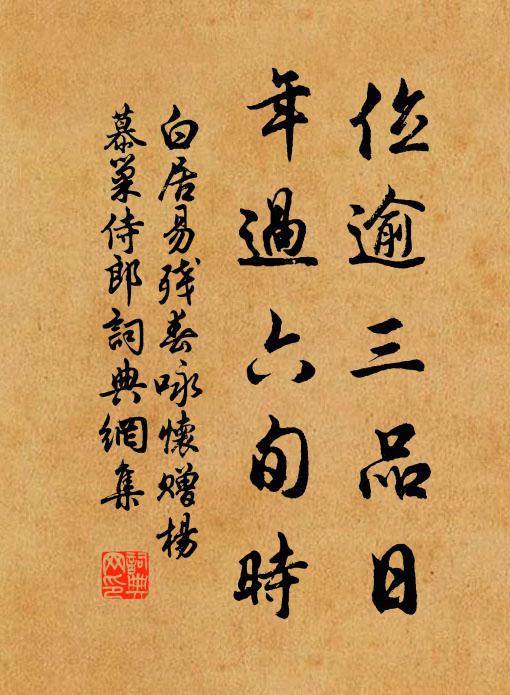 位逾三品日
年過六旬時
白居易殘春咏懷贈楊
慕巢侍郎詞典網集
詞典
网印